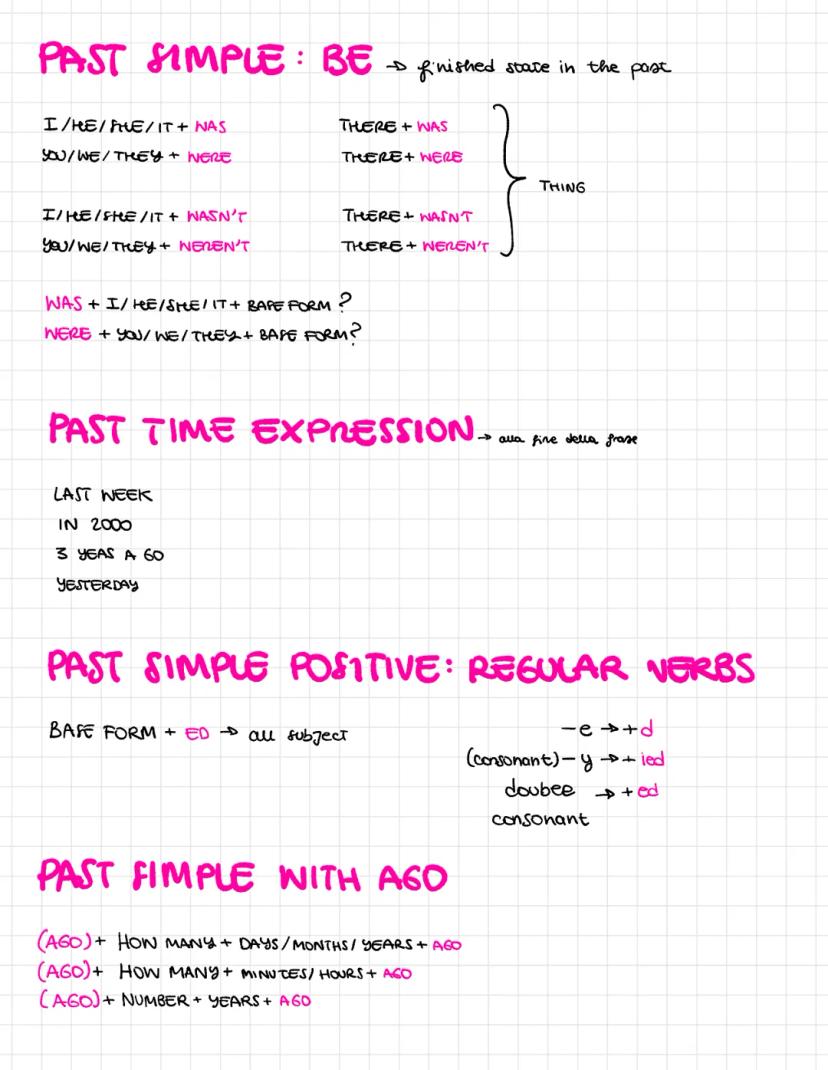 PAST SIMPLE: BE → finished state in the past
I/HE/SHE/IT + WAS
YOU/WE/THEY + WERE
THERE + WAS
THERE + WERE
I/HE/SHE/IT + WASN'T
YOU/WE/THEY + WEREN'T
THERE + WASN'T
THERE + WEREN'T
THING
WAS + I/HE/SHE/IT + BASE FORM?
WERE + YOU/WE/THEY + BASE FORM?
PAST TIME EXPRESSION → alla fine della frase
LAST WEEK
IN 2000
3 YEAS A GO
YESTERDAY
PAST SIMPLE POSITIVE: REGULAR VERBS
BASE FORM + ED → all subject
-e → + d
(consonant) - y → + ied
doubee → + ed
consonant
PAST SIMPLE WITH AGO
(AGO) + HOW MANY + DAYS/MONTHS/YEARS + AGO
(AGO) + HOW MANY + MINUTES/HOURS + AGO
(AGO) + NUMBER + YEARS + AGO